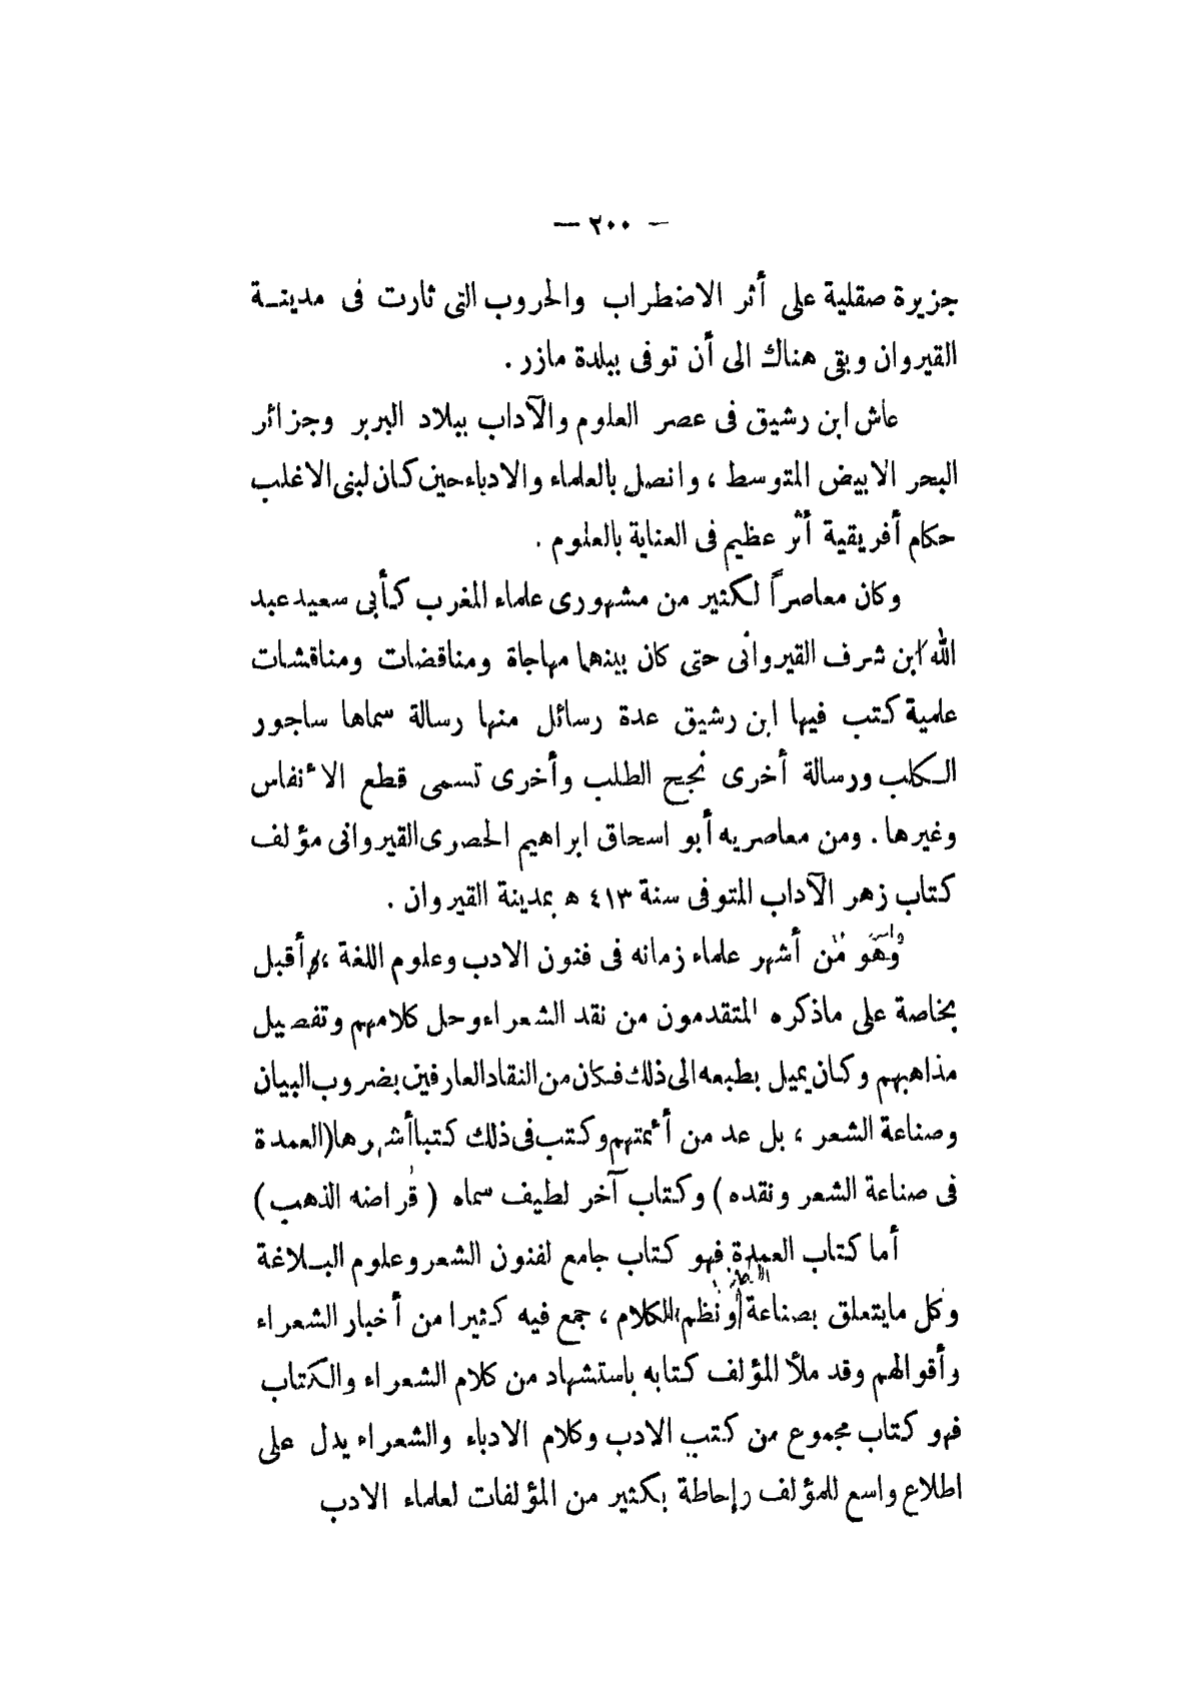 — ٢٠٠ —
جزيرة صقلية على أثر الاضطراب والحروب التى ثارت فى مدينـة
القيروان وبقى هناك الى أن توفى ببلدة مازر .
عاش ابن رشيق فى عصر العلوم والآداب ببلاد البربر وجزائر
البحر الابيض المتوسط ، واتصل بالعلماء والادباء حين كان لبنى الاغلب
حكام أفريقية أثر عظيم فى العناية بالعلوم .
وكان معاصراً لكثير من مشهورى علماء المغرب كأبى سعيد عبد
الله ابن شرف القيروانى حتى كان بينهما مهاجاة ومناقضات ومناقشات
علمية كتب فيها ابن رشيق عدة رسائل منها رسالة سماها ساجور
الكلب ورسالة أخرى نجح الطلب وأخرى تسمى قطع الأنفاس
وغيرها . ومن معاصريه أبو اسحاق ابراهيم الحصرى القيروانى مؤلف
كتاب زهر الآداب المتوفى سنة ٤١٣ ه بمدينة القيروان .
وهو من أشهر علماء زمانه فى فنون الادب وعلوم اللغة ، أقبل
بخاصة على ماذكره المتقدمون من نقد الشعراء وحل كلامهم وتفصيل
مذاهبهم وكان يميل بطبعه الى ذلك فكان من النقاد العارفين بضروب البيان
وصناعة الشعر ، بل عد من أئمتهم وكتب فى ذلك كتبا أشهرها (العمدة
فى صناعة الشعر ونقده) وكتاب آخر لطيف سماه ( قراضه الذهب)
أما كتاب العمدة فهو كتاب جامع لفنون الشعر وعلوم البـلاغة
وكل مايتعلق بصناعة ونظم الكلام ، جمع فيه كثيرا من أخبار الشعراء
وأقوالهم وقد ملأ المؤلف كتابه باستشهاد من كلام الشعراء والكتاب
فهو كتاب مجموع من كتب الادب وكلام الادباء والشعراء يدل على
اطلاع واسع للمؤلف وإحاطة بكثير من المؤلفات لعلماء الادب